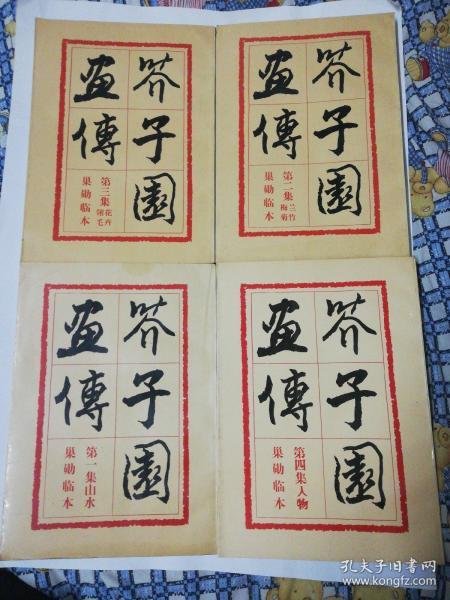 芥子園
畫傳
第三集花卉翎毛
巢勛临本
芥子園
畫傳
第二集兰竹梅菊
巢勛临本
芥子園
畫傳
第一集山水
巢勛临本
芥子園
畫傳
第四集人物
巢勛临本
孔夫子旧书网
www.kongfz.com